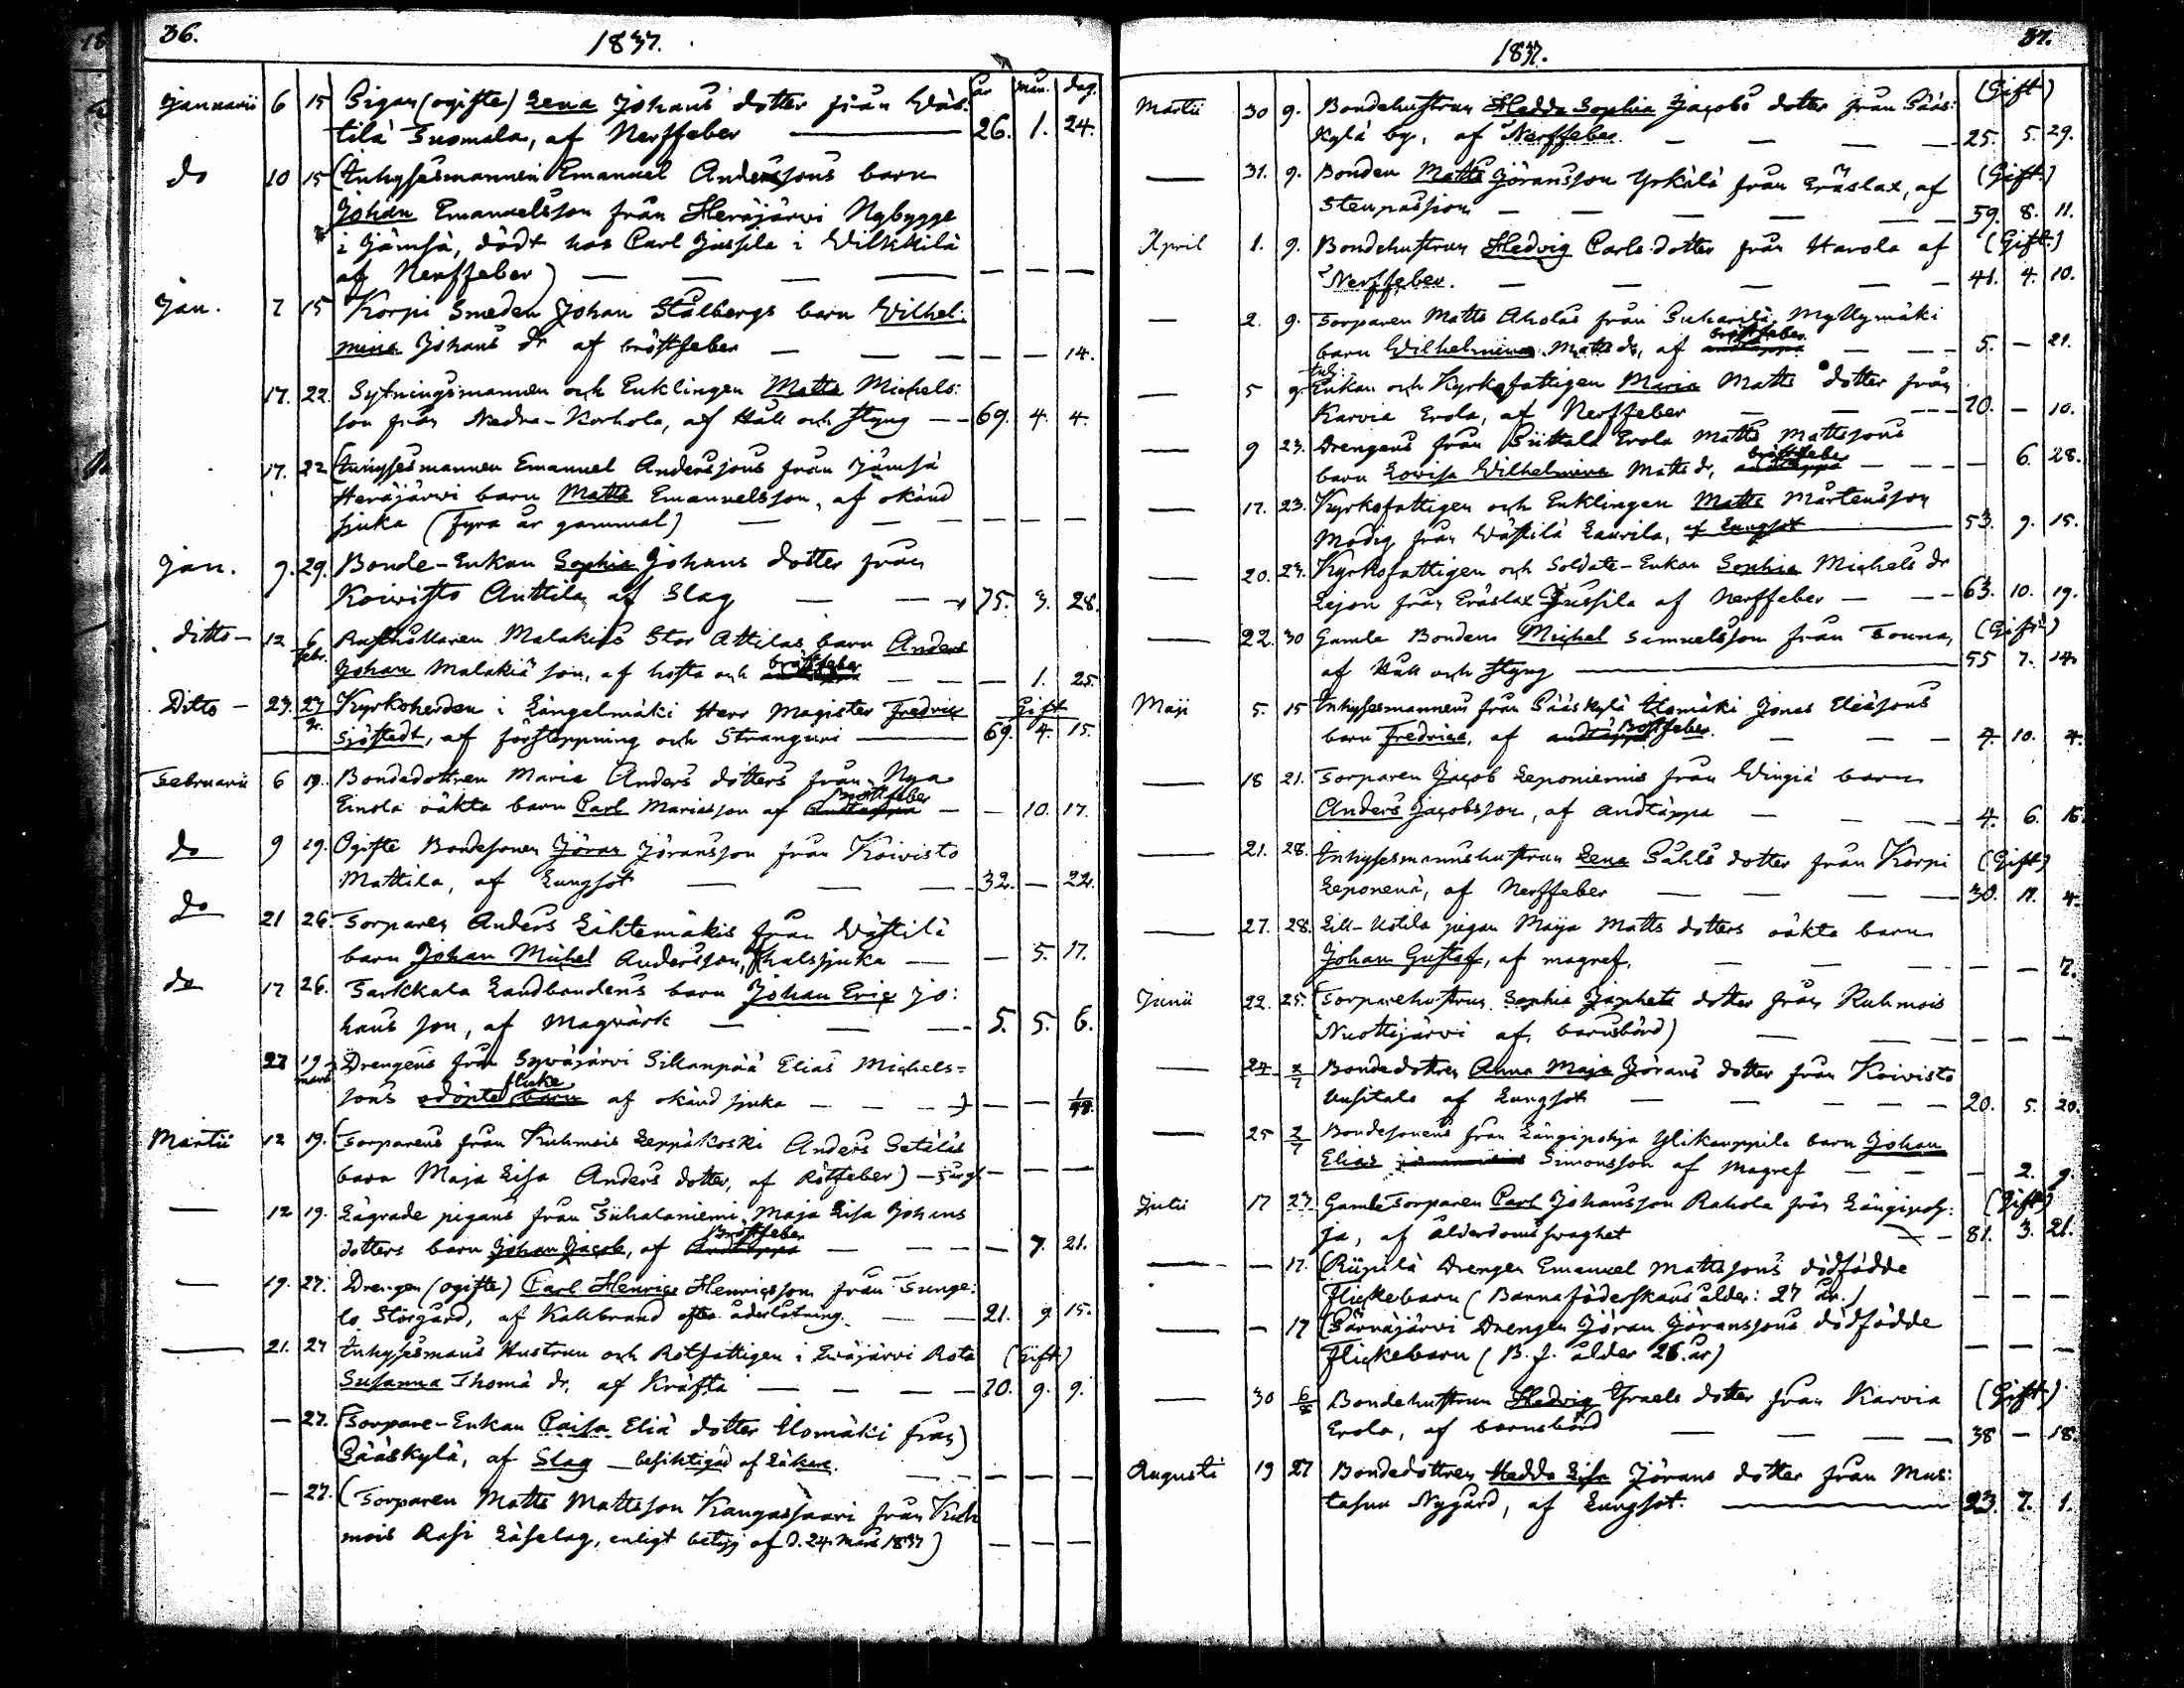 36.
1837.
år mån. dag.
Januarii 6 15 Pigan (ogifte) Lena Johans dotter från Wäs-
tilä Tuomala, af Nerffeber 26. 1. 24.
do 10 15 (Inhysesmannen Emanuel Anderssons barn
Johan Emanuelsson från Heräjärvi Nybygge
i Jämsä, dödt hos Carl Jussila i Wilkkilä
af Nerffeber) — — —
Jan. 7 15 Korpi Smeden Johan Stålbergs barn Wilhel-
mina Johans dr af bröstfeber — — 14.
17. 22. Sytningsmannen och Enklingen Matts Michels-
son från Nedra-Korhola, af Håll och styng 69. 4. 4.
17. 22 (Inhysesmannen Emanuel Anderssons från Jämsä
Heräjärvi barn Matts Emanuelsson, af okänd
sjuka (fyra år gammal) — — —
Jan. 9. 29. Bonde-Enkan Sophia Johans dotter från
Koivisto Anttila, af Slag 75. 3. 28.
ditto 12 6 febr. Malakias Stor Attilas barn Anders
Johan Malakiä son, af hosta och bröstfeber — 1. 25.
Ditto 23. 27 Kyrkoherden i Längelmäki Herr Magister Fredric Gift
Sjöstedt, af förstoppning och Stranguri 69. 4. 15.
Februarii 6 19. Bondedottren Maria Anders dotters från Nya
Einola oäkta barn Carl Mariasson af Bröstfeber — 10. 17.
do 9 19. Ogifte Bondesonen Jöran Jöransson från Koivisto
Mattila, af Lungsot 32. — 22.
do 21 26. Torparen Anders Lähtemäkis från Västilä
barn Johan Michel Andersson, halssjuka — 5. 17.
do 17 26. Sarkkala Landbondens barn Johan Eric Jo-
hans son, af Magvärk 5. 5. 6.
27 19 mars Drengens från Syväjärvi Sikanpää Elias Michels-
sons odöpte flicke barn af okänd sjuka — —
Martii 12 19. (Torparens från Kuhmois Leppäkoski Anders Setäläs
barn Maja Lisa Anders dotter, af Rötfeber) — —
— 12 19. Lägrade pigans från Tiihalaniemi, Maja Lisa Johans
dotters barn Johan Jacob, af Bröstfeber — 7. 21.
— 19. 27. Drengen (ogifte) Carl Henric Henricsson från Tunge-
lo Storgård, af Kallbrand efter åderlåtning. 21. 9 15.
— 21. 27 Inhysesmans Hustrun och Rotfattigen i Eväjärvi Rota (Gift)
Susanna Thomä dr, af Kräfta 70. 9. 9.
— 27. (Torpare-Enkan Caisa Eliä dotter Elomäki från)
Pääskylä, af Slag — besiktigad af Läkare. — — —
— 27. (Torparen Matts Mattsson Kangassaari från Kuh
mois Rasi Läselag, enligt betyg af d. 24 Mars 1837) — — —
37.
1837.
Martii 30 9. Bondehustrun Hedda Sophia Jacobs dotter från Pääs- (Gift)
kylä by, af Nerffeber 25. 5. 29.
— 31. 9. Bonden Matts Jöransson Yrkälä från Eräslax, af (Gift.)
Stenpassion 59. 8. 11.
April 1. 9. Bondehustrun Hedvig Carls dotter från Harola af (Gift.)
Nerffeber. 41. 4. 10.
— 2. 9. Torparen Matts Aholas från Puharila Myllymäki
barn Wilhelmina Matts dr, af bröstfeber 5. — 21.
— 5 9. Enkan och Kyrkofattigen Maria Matts dotter från
Karvia Erola, af Nerffeber 70. — 10.
— 9 23. Drengens från Piittala Erola Matts Mattssons
barn Lovisa Wilhelmina Matts dr, bröstfeber — 6. 28.
— 17. 23. Kyrkofattigen och Enklingen Matts Mårtensson
Modig från Västilä Laurila, af Lungsot 53. 9. 15.
— 20. 23. Kyrkofattigen och Soldats-Enkan Sophia Michels dr
Lejon från Eräslax Jussila af Nerffeber 63. 10. 19.
— 22. 30 Gamle Bonden Michel Samuelsson från Touna, (Gift)
af Håll och styng 55 7. 14.
Maji 5. 15 Inhysesmannens från Pääskylä Elomäki Jonas Eliässons
barn Fredrica, af andtäppa Bröstfeber. 7. 10. 4.
— 18 21. Torparen Jacob Leponiemis från Wingiä barn
Anders Jacobsson, af andtäppa 4. 6. 16.
— 21. 28. Inhysesmannshustrun Lena Påhls dotter från Korpi (Gift)
Leponenä, af Nerffeber 30. 11. 4.
— 27. 28. Lill-Uotila pigan Maija Matts dotters oäkta barn
Johan Gustaf, af magref. — — 7.
Junii 22. 25. (Torparehustrun Sophia Japhets dotter från Kuhmois
Nuottijärvi af barnsbörd) — — —
— 24 2/7 Bondedottren Anna Maja Jörans dotter från Koivisto
Uusitalo af Lungsot 20. 5. 20.
— 25 2/7 Bondesonens från Längipohja Ylikauppila barn Johan
Elias Simonsson af Magref — 2. 9.
Julii 17 23. Gamle Torparen Carl Johansson Rahola från Längipoh- (Gift)
ja, af ålderdomssvaghet 81. 3. 21.
— — 17. (Riipilä Drengen Emanuel Mattssons dödfödde
Flickebarn (Barnaföderskans ålder: 27 år.) — — —
— — 17 (Pärnäjärvi Drengen Jöran Jöranssons dödfödde
Flickebarn (B. f. ålder 26. år) — — —
— 30 6/8 Bondehustrun Hedvig Israels dotter från Karvia (Gift)
Erola, af barnsbörd 38 — 18.
Augusti 19 27 Bondedottren Hedda Lisa Jörans dotter från Mus-
tasuu Nygård, af Lungsot. 23. 7. 1.